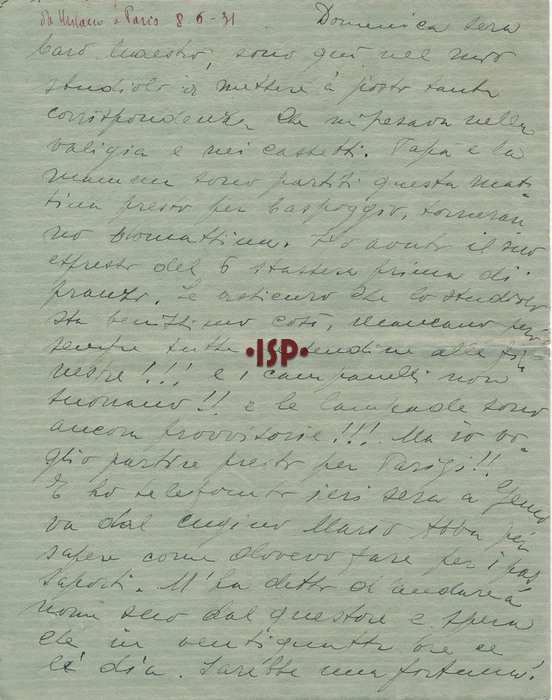 da Milano à Paris 8-6-31
Domenica sera
Caro Maestro, sono qui nel mio
studiolo a mettere à posto tanta
corrispondenza che mi pesava nella
valigia e nei cassetti. Papà e la
mamma sono partiti questa mat-
tina presto per Caspoggio, torneran
no domattina. Ho avuto il suo
espresso del 6 stassera prima di
pranzo. Le assicuro che lo studiolo
sta benissimo così, mancano però
sempre tutte le tendine alle fi-
nestre!!! e i campanelli non
suonano!! e le lampade sono
ancora provvisorie!!! Ma io vo-
glio partire presto per Parigi!!
E ho telefonato ieri sera a Geno
va dal cugino Mario Abba per
sapere come dovevo fare per i pas
saporti. M'ha detto d'andare à
nome suo dal questore e spera
che in ventiquattr'ore ce
li dia. Sarebbe una fortuna!
•ISP•